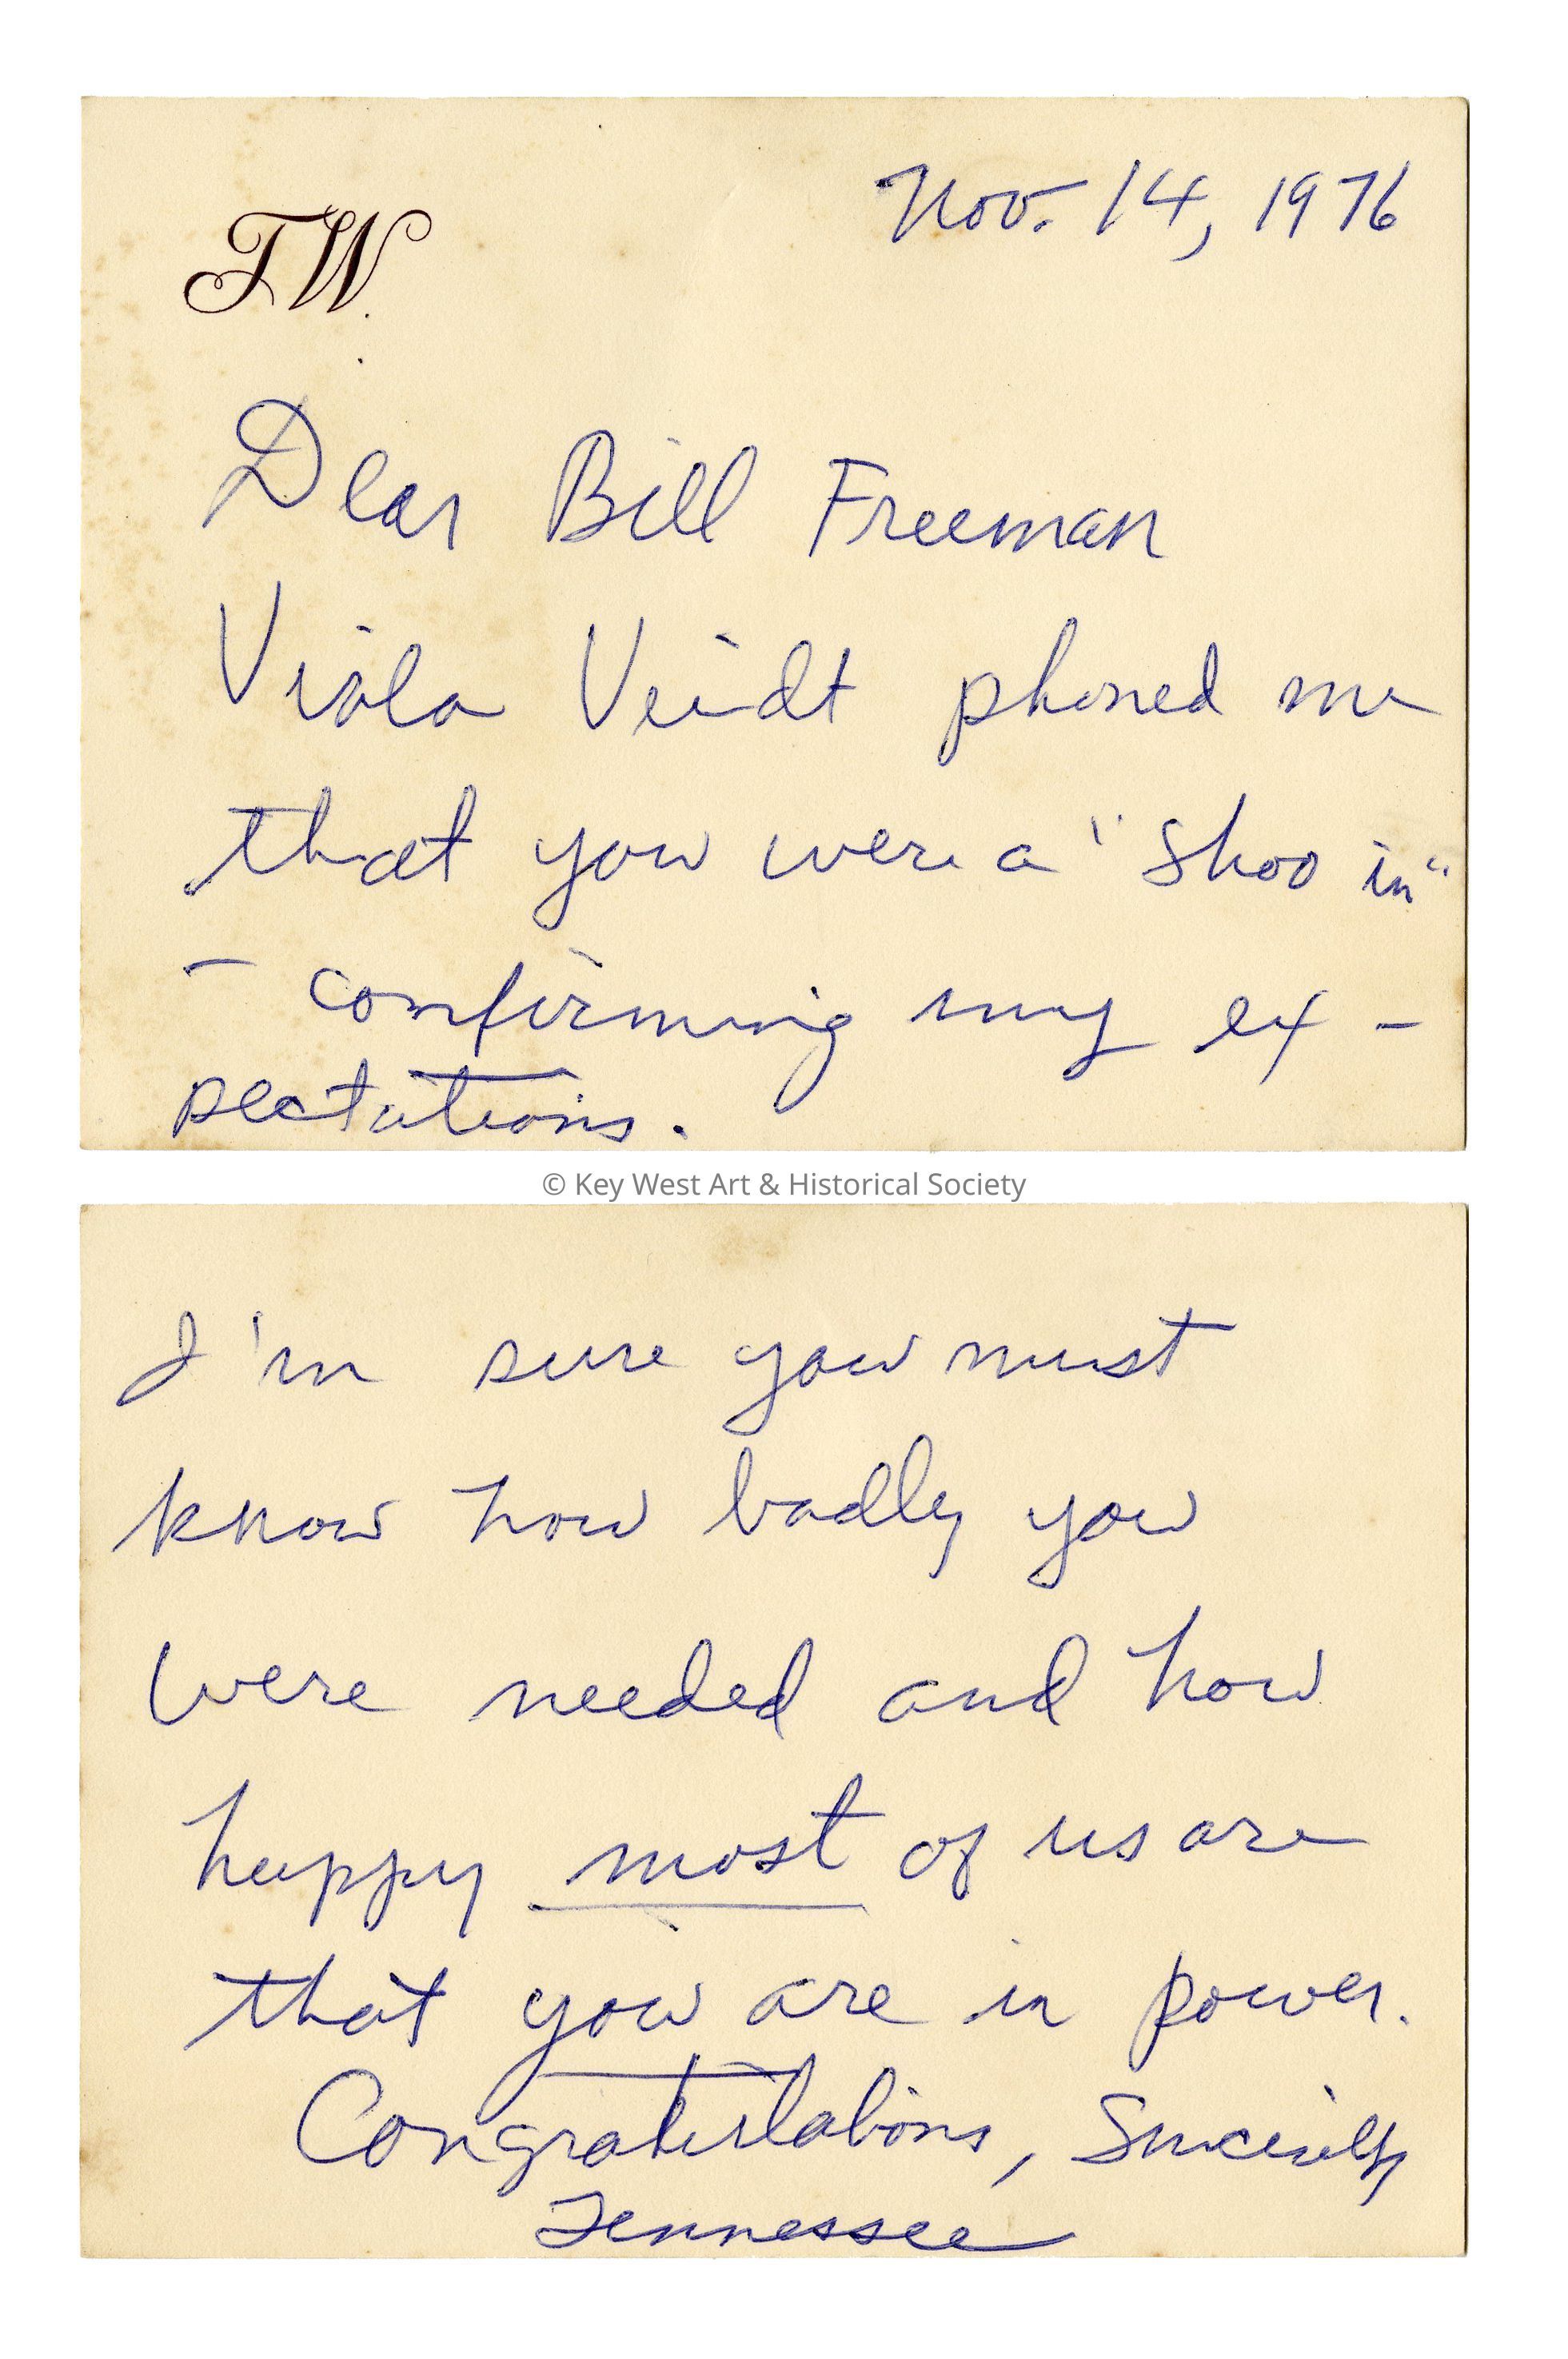 Nov. 14, 1976
TW.
Dear Bill Freeman
Viola Veidt phoned me
that you were a "shoo in"
- confirming my ex -
pectations.
© Key West Art & Historical Society
I'm sure you must
know how badly you
were needed and how
happy most of us are
that you are in power.
Congratulations, Sincerely
Tennessee